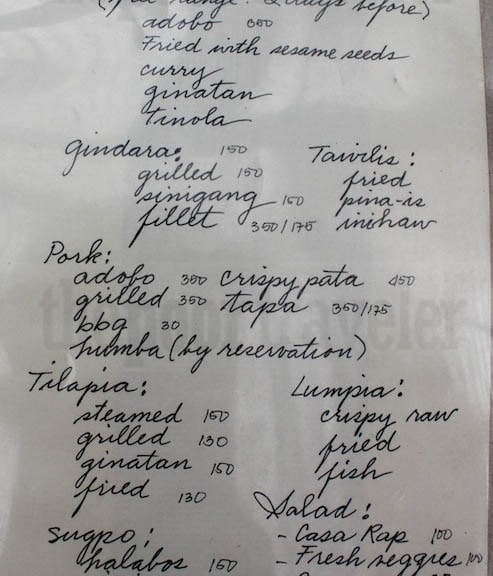 before)
adobo 350
Fried with sesame seeds
curry
ginatan
Tinola
Gindara: 150
grilled 150
sinigang 150
fillet 350/175
Tawilis:
fried
pina-is
inihaw
Pork:
adobo 350 crispy pata 450
grilled 350 tapa 350/175
bbq 30
humba (by reservation)
Tilapia:
steamed 150
grilled 130
ginatan 150
fried 130
Lumpia:
crispy raw
fried
fish
Salad:
- Casa Rap 100
- Fresh veggies 100
Sugpo:
halabos 150
traveler